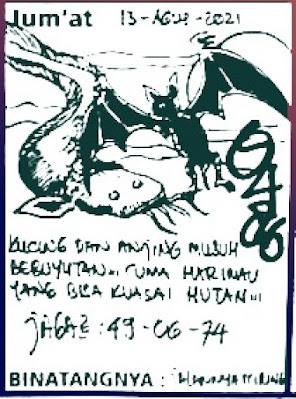 Jum'at 13-AGUS-2021
KUCING DAN ANJING MUSUH
BEBUYUTAN... CUMA HARIMAU
YANG BISA KUASAI HUTAN...
JAGA2 : 49-06-74
BINATANGNYA :